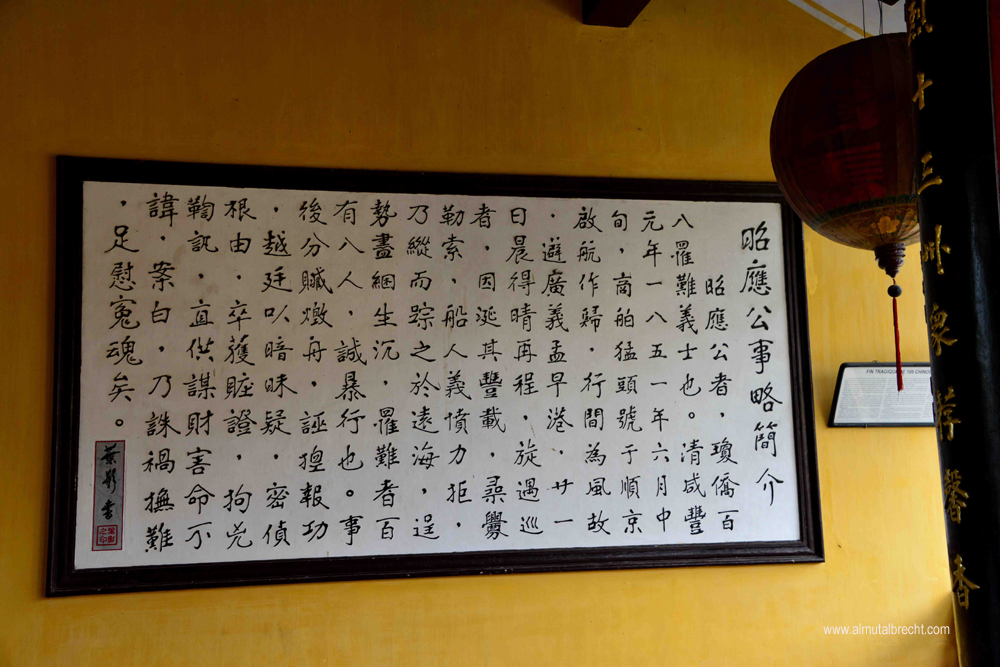 昭應公事略簡介
昭應公者,瓊僑百
八罹難義士也。清咸豐
元年一八五一年六月中
旬,商舶猛頭號于順京
啟航作歸,行間為風故
,避廣義孟早港,廿一
日晨得晴再程,旋遇巡
者,因涎其豐載,尋釁
勒索,船人義憤力拒,
乃縱而踪之於遠海,逞
勢盡綑生沉,罹難者百
有八人,誠暴行也。事
後分贓燬舟,誣捏報功
,越廷以暗昧疑,密偵
根由,卒獲賍證,拘兇
鞫訊,直供謀財害命不
諱,案白,乃誅禍撫難
,足慰寃魂矣。
十三州懷荐馨香
FIN TRAGIQUE
www.almutalbrecht.com